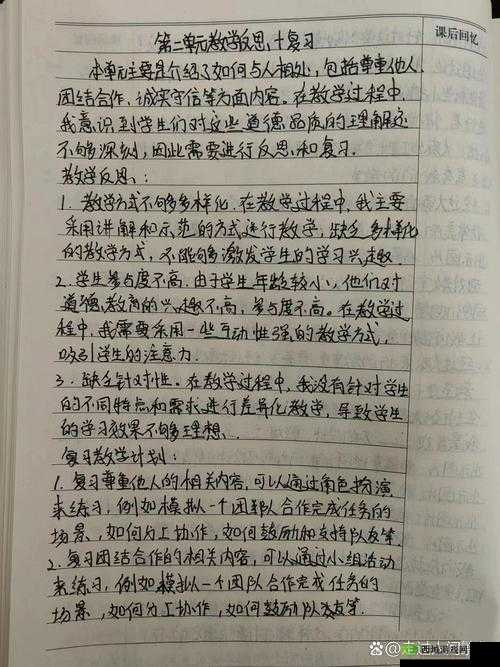 课后回忆
第二单元教学反思+复习
本单元主要是介绍了如何与人相处，包括尊重他人
团结合作，诚实守信等方面内容。在教学过程中，
我意识到学生们对这些道德品质的理解还
不够深刻，因此需要进行反思和复习。
教学反思：
1．教学方式不够多样化．在教学过程中，我主要
采用讲解和示范的方式进行教学，缺乏多样化
的教学方式，不能够激发学生的学习兴趣
2．学生参与度不高．由于学生年龄较小，他们对
道德教育的兴趣不高，参与度不高。在教学过
程中，我需要采用一些互动性强的教学方式，
吸引学生的注意力．
3．缺乏针对性。在教学过程中，我没有针对学生
的不同特点和需求进行差异化教学，导致学生
的学习效果不够理想、
复习教学计划：
1．复习尊重他人的相关内容，可以通过角色扮演
来练习，例如模拟一个团队合作完成任务的
场景，如何分工协作，如何鼓励和支持队友等．
2．复习团结合作的相关内容，可以通过小组活动
来练习，例如模拟一个团队合作完成任务的
场景，如何分工协作，如何鼓励队友等．
西地游戏网